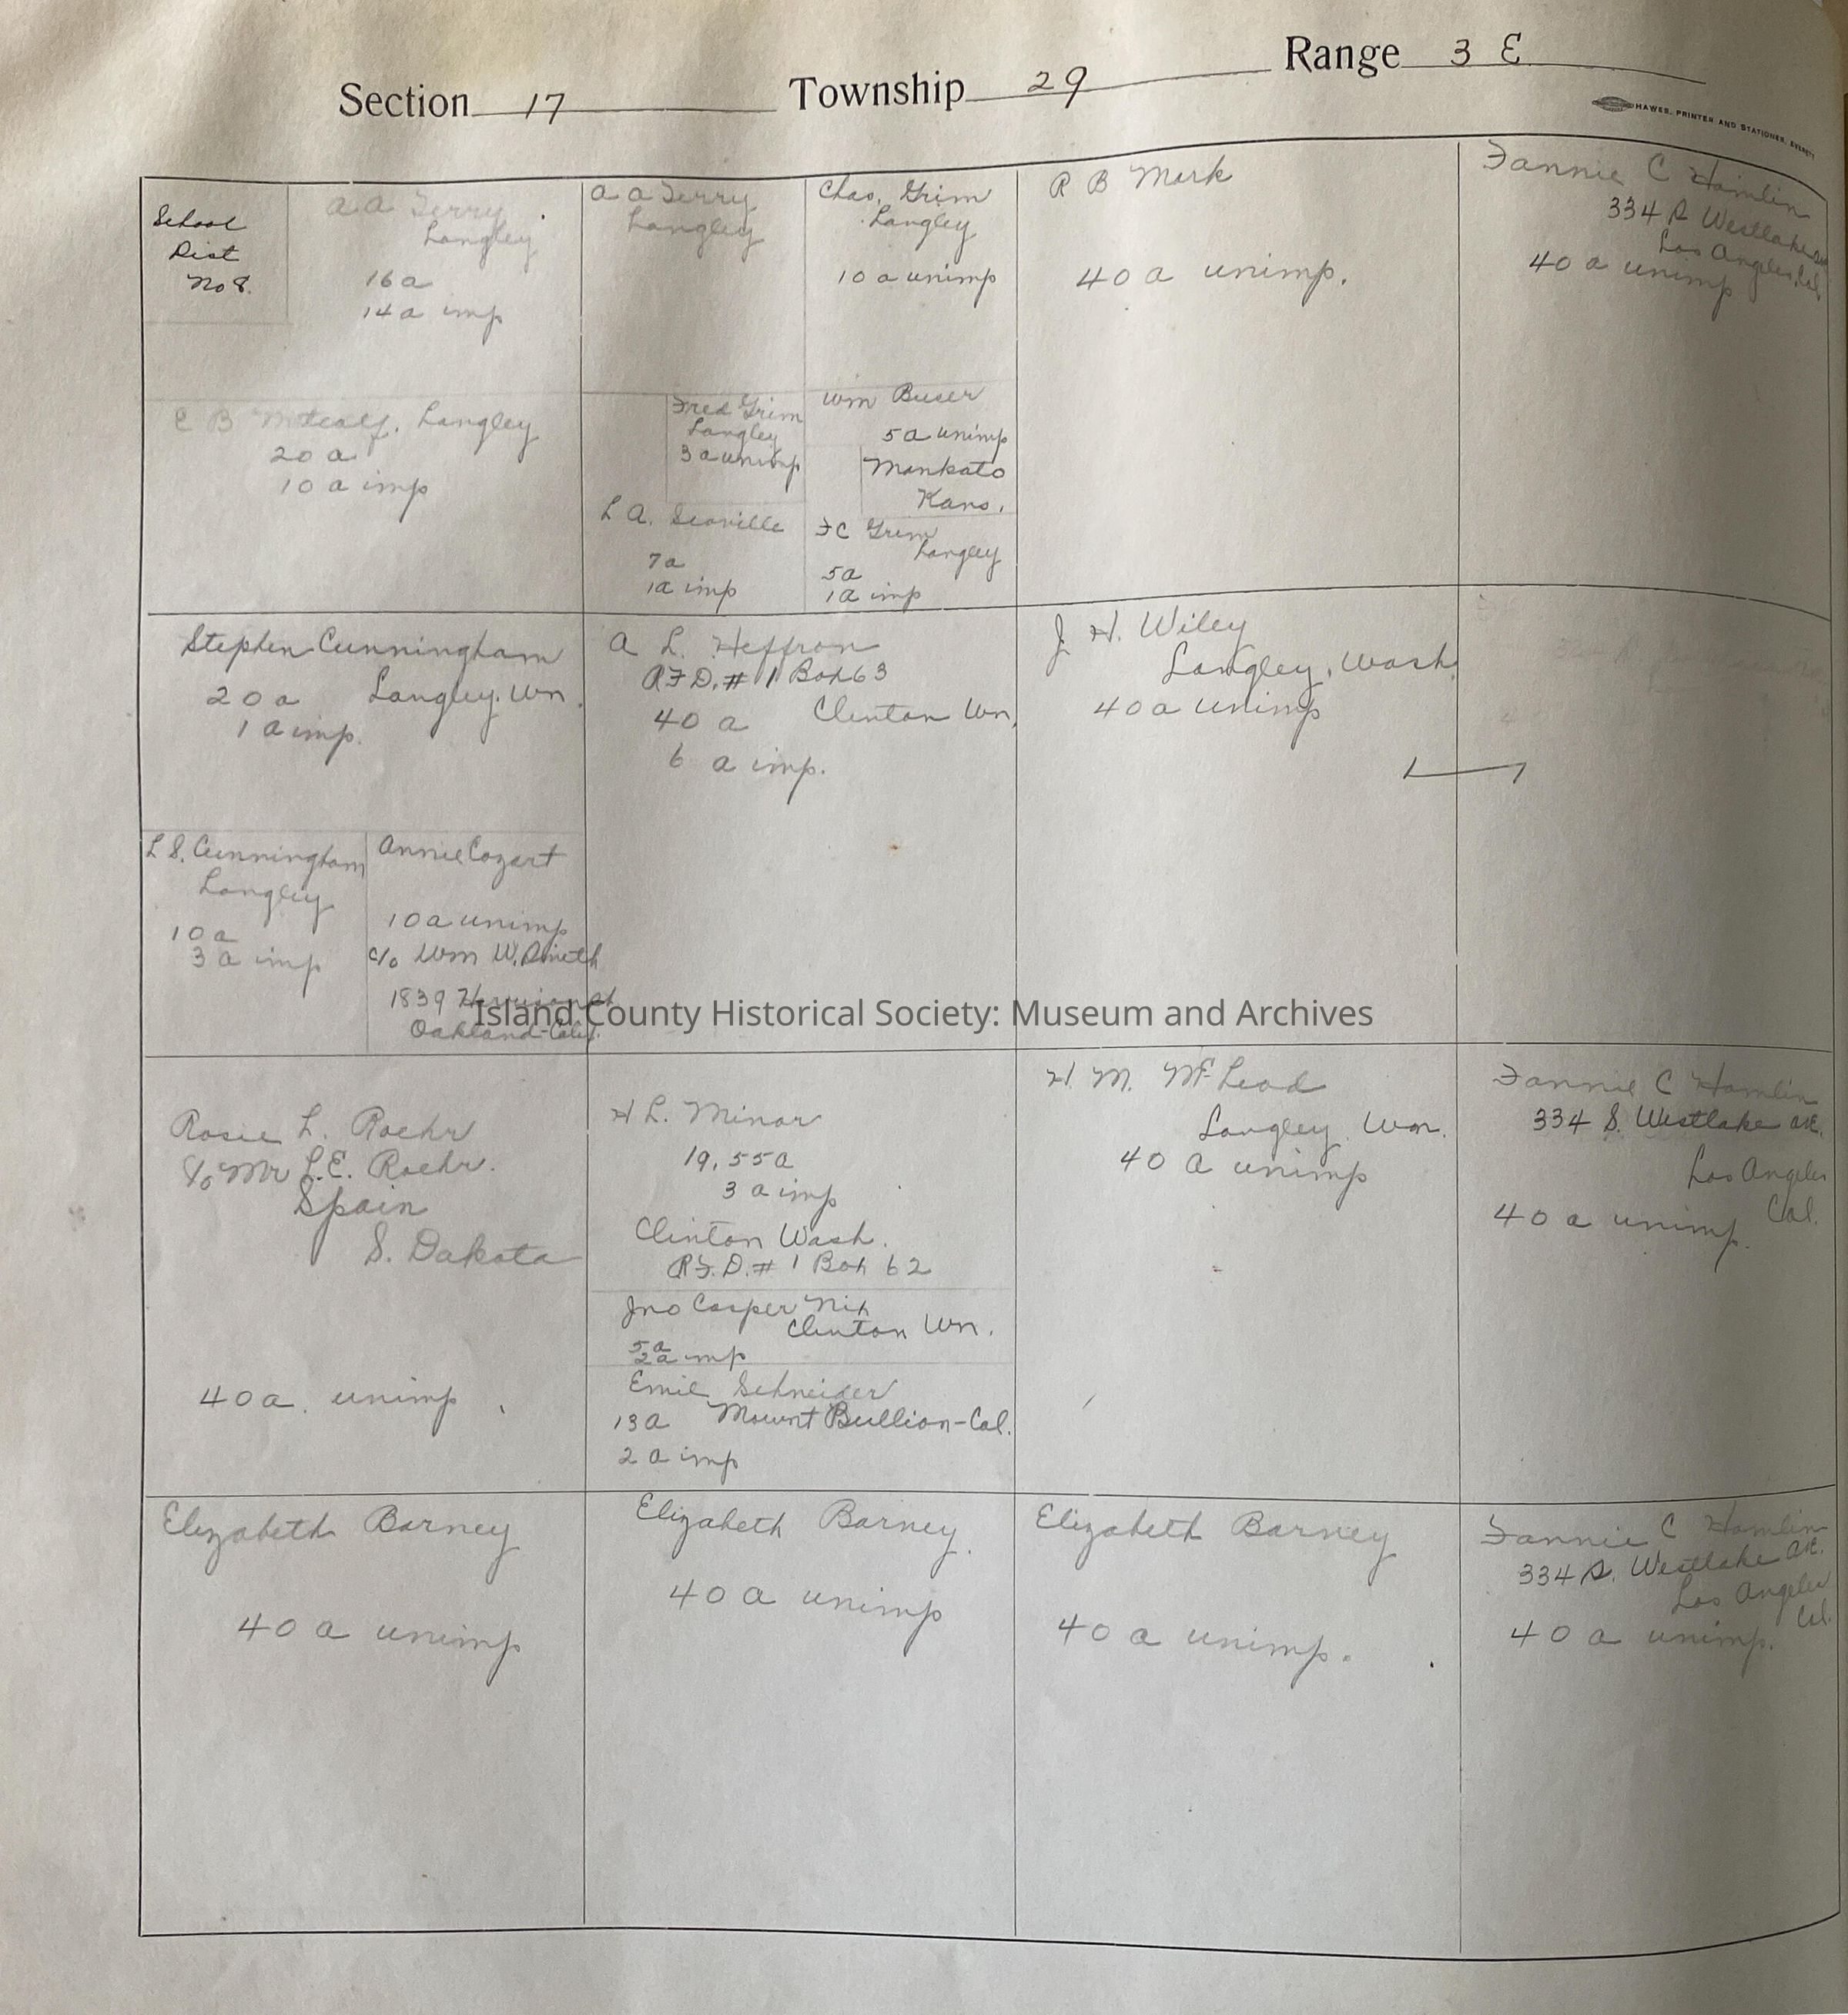 Section 17 Township 29 Range 3 E
HAWES, PRINTER AND STATIONER, EVERETT
School
Dist
No 8.
A A Terry
Langley
16 a
14 a imp
A A Terry
Langley
Chas. Grim
Langley
10 a unimp
R B Mark
40 a unimp.
Fannie C Hamlin
334 S Westlake
Los Angeles, Cal.
40 a unimp
C B Metcalf, Langley
20 a
10 a imp
Fred Grim
Langley
3 a unimp
Wm Buser
5 a unimp
Mankato
Kans.
L A. Scoville
7 a
1 a imp
F C Grim
Langley
5 a
1 a imp
Stephen Cunningham
20 a Langley. Wn.
1 a imp.
A L. Heffron
R F D. # 1 Box 63
40 a Clinton Wn.
6 a imp.
J. H. Wiley
Langley, Wash.
40 a unimp
L S. Cunningham
Langley
10 a
3 a imp
Annie Cozart
10 a unimp
c/o Wm W. Smith
1839 Harrison st
Oakland-Calif.
Island County Historical Society: Museum and Archives
Rosie L. Roehr
c/o Mr L.E. Roehr.
Spain
S. Dakota
40 a. unimp
H L. Minor
19.55 a
3 a imp
Clinton Wash.
R F. D. # 1 Box 62
Jno Casper Nix
Clinton Wn.
5 a
2 a imp
Emil Schneider
13 a Mount Bullion-Cal.
2 a imp
H. M. McLeod
Langley. Wn.
40 a unimp
Fannie C Hamlin
334 S. Westlake ave.
Los Angeles
Cal.
40 a unimp.
Elizabeth Barney
40 a unimp
Elizabeth Barney.
40 a unimp
Elizabeth Barney
40 a unimp.
Fannie C Hamlin
334 S. Westlake ave.
Los Angeles
Cal.
40 a unimp.